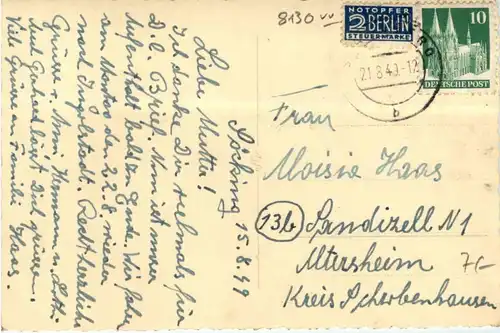 8130
NOTOPFER
2 BERLIN
STEUERMARKE
10
DEUTSCHE POST
21.8.49.-12
b
Pöcking 15.8.49
Liebe Mutter!
Ich danke Dir vielmals für
D. l. Brief. Nun ist unser
Aufenthalt bald zu Ende. Wir fahren
am Montag den 22.8. wieder
nach Ingolstadt. Recht herzliche
Grüsse v. Hermann u.
und Gerhard läßt Dich grüssen.
Viele Grüße an Familie Haas.
Frau
Haas
13b Sandizell N1
Altersheim
Kreis Schrobenhausen